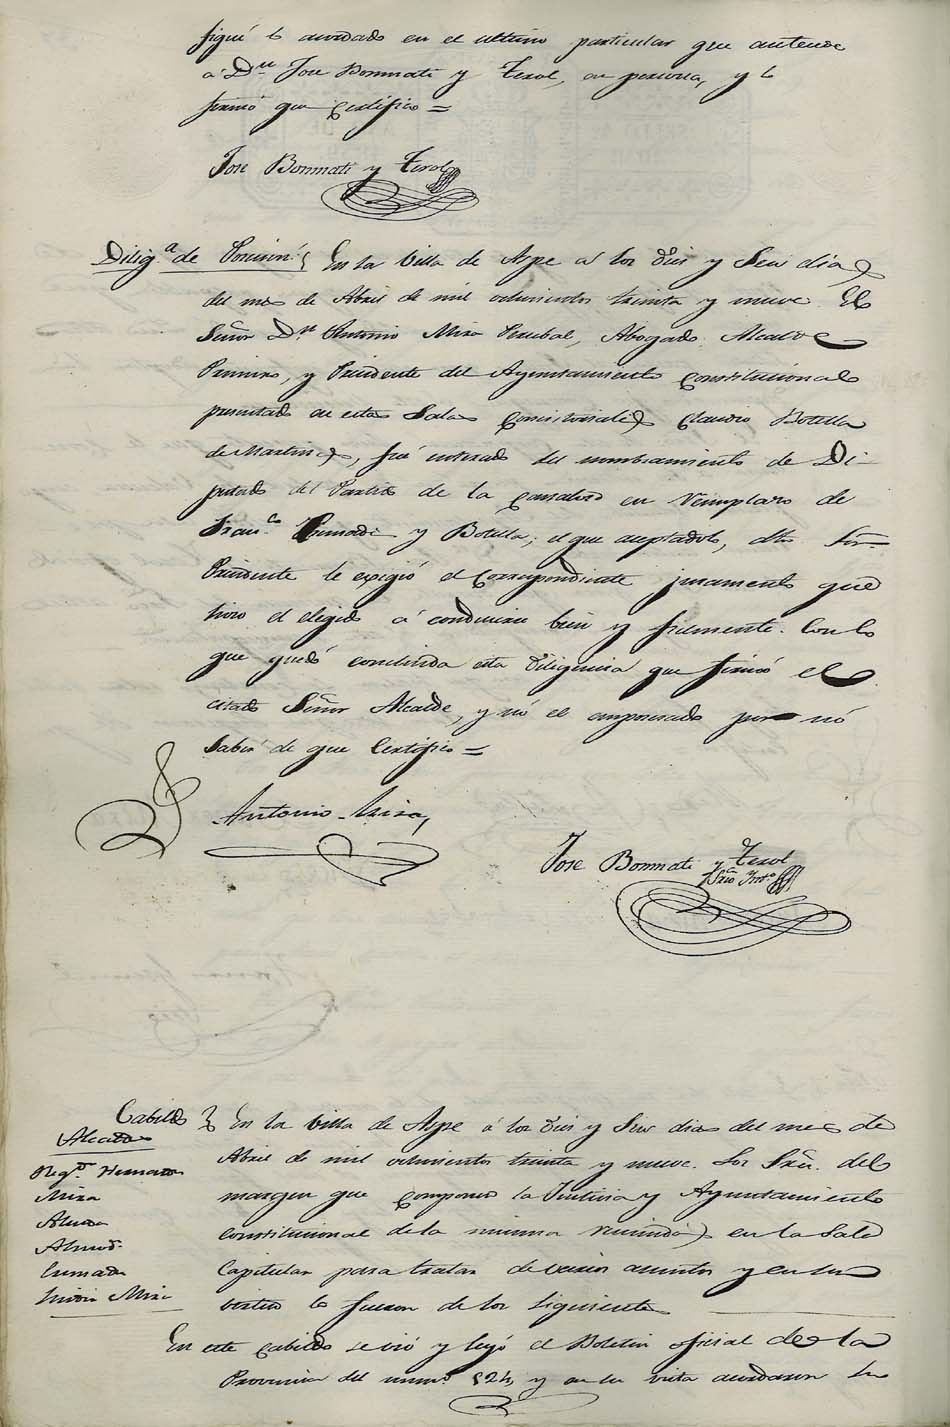 sigue lo acordado en el ultimo particular que antecede
á Dn. Jose Bonmati y Terol, en persona, y lo
firmó que Certifico =
Jose Bonmati y Terol
Diliga. de Posesion En la Villa de Aspe á los Diez y Seis dias
del mes de Abril de mil ochocientos treinta y nueve. El
Señor Dn. Antonio Mira Percebal, Abogado, Alcalde
Primero, y Presidente del Ayuntamiento Constitucional
presentado en estas Salas Consistoriales Claudio Botella
de Martinez, fué enterado del nombramiento de Di-
putado del Partido de la en reemplazo de
Franco. y Botella; el que aceptadolo, dho Sor.
Presidente le exigió el Correspondiente juramento que
hizo el elegido á conducirse bien y fielmente. Con lo
que quedó concluida esta Diligencia que firmó el
citado Señor Alcalde, y nó el emposesado por nó
Saber de que Certifico =
Antonio Mira,
Jose Bonmati y Terol
Srio Into.
Cabildo En la Villa de Aspe á los Diez y Seis dias del mes de
Alcalde
Abril de mil ochocientos treinta y nueve. Los Sres. del
Regor.
margen que componen la Justicia y Ayuntamiento
Mira
constitucional de la misma reunidos en la Sala
Almod.
Capitular para tratar de varios asuntos y en su
Mira
virtud lo fueron de los Siguientes
En este Cabildo se vió y leyó el Boletin oficial de la
Provincia del numo. 524, y en su vista acordaron Su